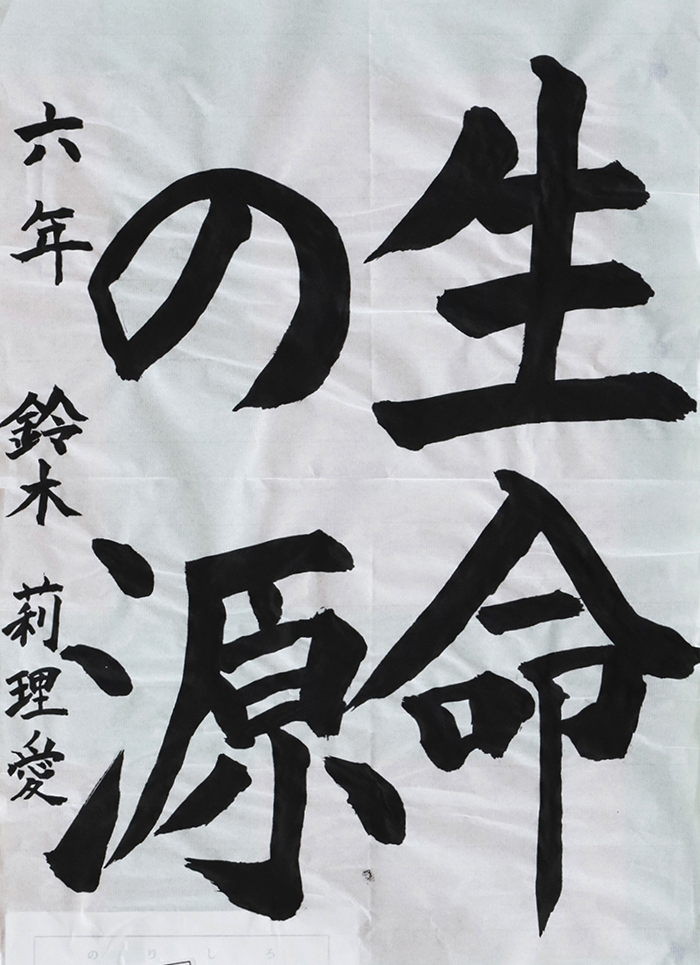 生命
の源
六年 鈴木 莉理愛
のりしろ